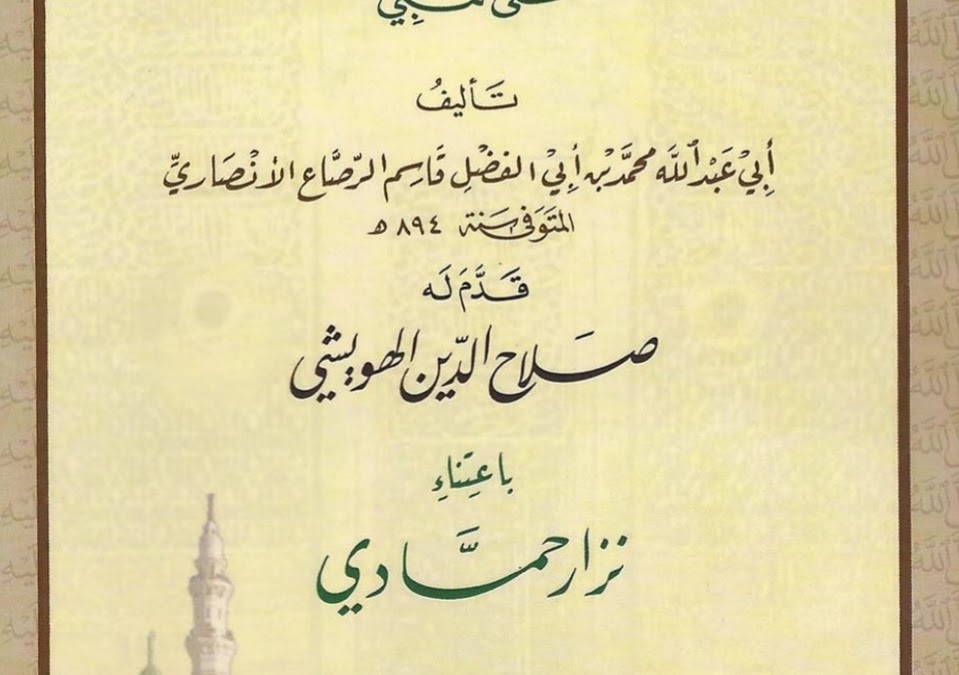 تَأليفُ
أَبِيْ عَبْدِ اللَّه مُحَمَّد بْنِ أَبِيْ الفَضْلِ قَاسِم الرَّصَّاع الأَنْصَارِيِّ
المُتَوَفَّى سَنَة ٨٩٤ ه
قَدَّمَ لَه
صَلَاح الدِّين الهويشي
باعتِناءِ
نزار حمَّادي